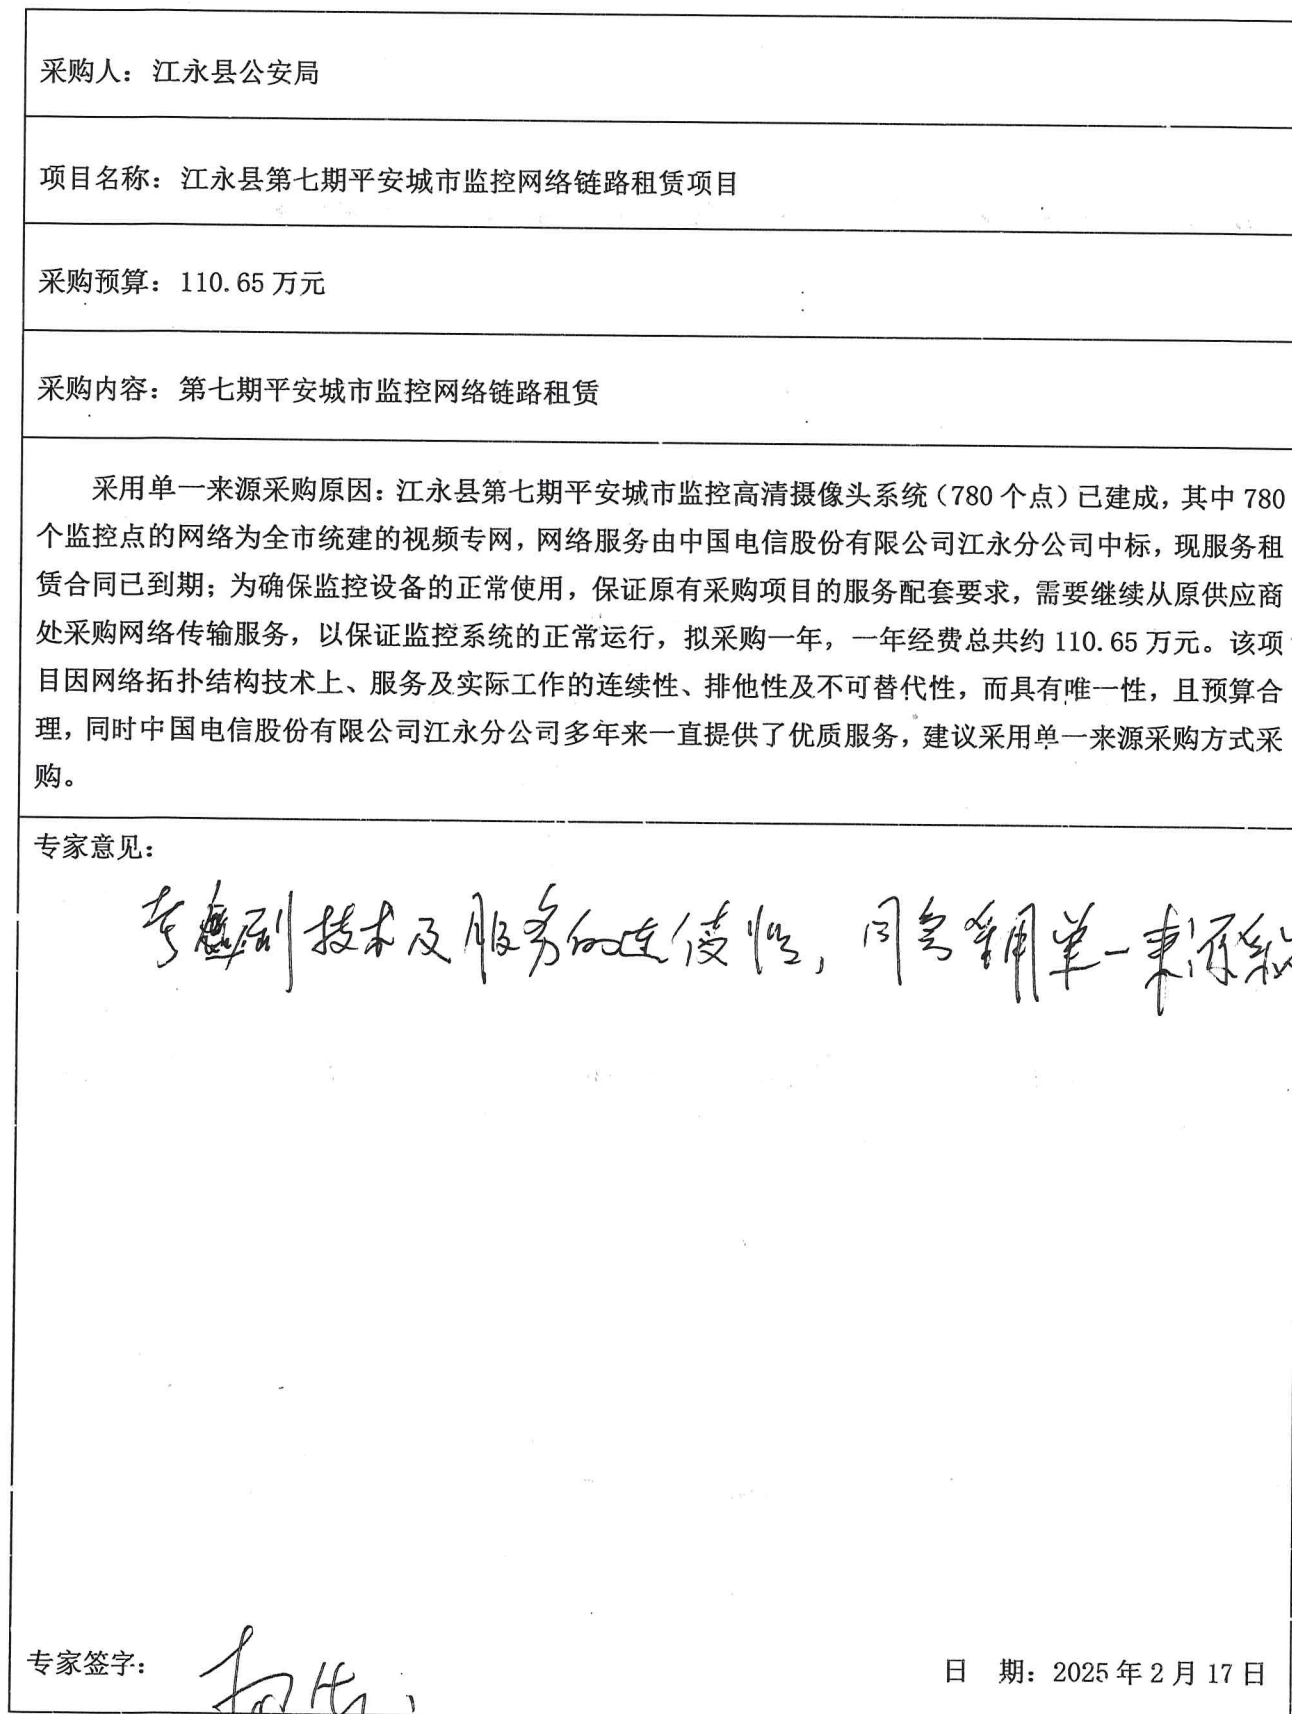 采购人：江永县公安局
项目名称：江永县第七期平安城市监控网络链路租赁项目
采购预算：110.65 万元
采购内容：第七期平安城市监控网络链路租赁
采用单一来源采购原因：江永县第七期平安城市监控高清摄像头系统（780 个点）已建成，其中 780
个监控点的网络为全市统建的视频专网，网络服务由中国电信股份有限公司江永分公司中标，现服务租
赁合同已到期；为确保监控设备的正常使用，保证原有采购项目的服务配套要求，需要继续从原供应商
处采购网络传输服务，以保证监控系统的正常运行，拟采购一年，一年经费总共约 110.65 万元。该项
目因网络拓扑结构技术上、服务及实际工作的连续性、排他性及不可替代性，而具有唯一性，且预算合
理，同时中国电信股份有限公司江永分公司多年来一直提供了优质服务，建议采用单一来源采购方式采
购。
专家意见：
考虑到技术及服务的连续性，同意采用单一来源采
专家签字：
日 期：2025 年 2 月 17 日